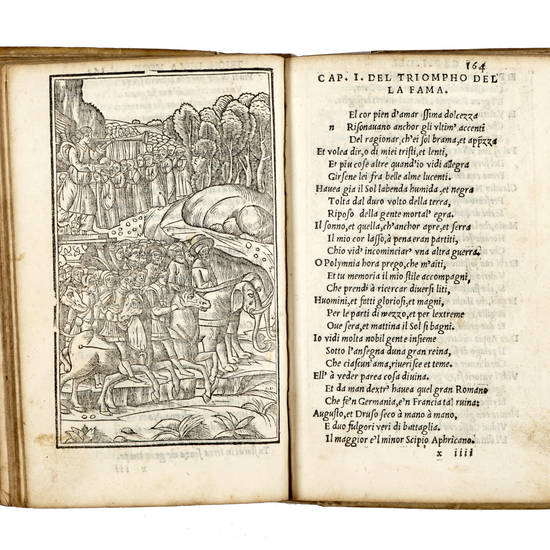 164
CAP. I. DEL TRIOMPHO DEL
LA FAMA.
El cor pien d'amarissima dolcezza
n Risonauano anchor gli vltim' accenti
Del ragionar, ch'ei sol brama, et apprzza
Et volea dir, o di miei tristi, et lenti,
Et piu cose altre quand'io vidi allegra
Girsene lei fra belle alme lucenti.
Hauea gia il Sol la benda humida, et negra
Tolta dal duro volto della terra,
Riposo della gente mortal' egra.
Il sonno, et quella, ch'anchor apre, et serra
Il mio cor lasso, à pena eran partiti,
Chio vid' incominciar' vna altra guerra.
O Polymnia hora prego, che m'aiti,
Et tu memoria il mio stile accompagni,
Che prendi à ricercar diuersi liti,
Huomini, et fatti gloriosi, et magni,
Per le parti di mezzo, et per l'extreme
Oue sera, et mattina il Sol si bagni.
Io vidi molta nobil gente insieme
Sotto l'ansegna d'una gran reina,
Che ciascun' ama, riuerisce et teme.
Ell' à veder parea cosa diuina.
Et da man dextr' hauea quel gran Romano
Che fe'n Germania, e'n Francia tal ruina:
Augusto, et Druso seco à mano à mano,
E duo folgori veri di battaglia,
Il maggior e'l minor Scipio Aphricano.
x iiii